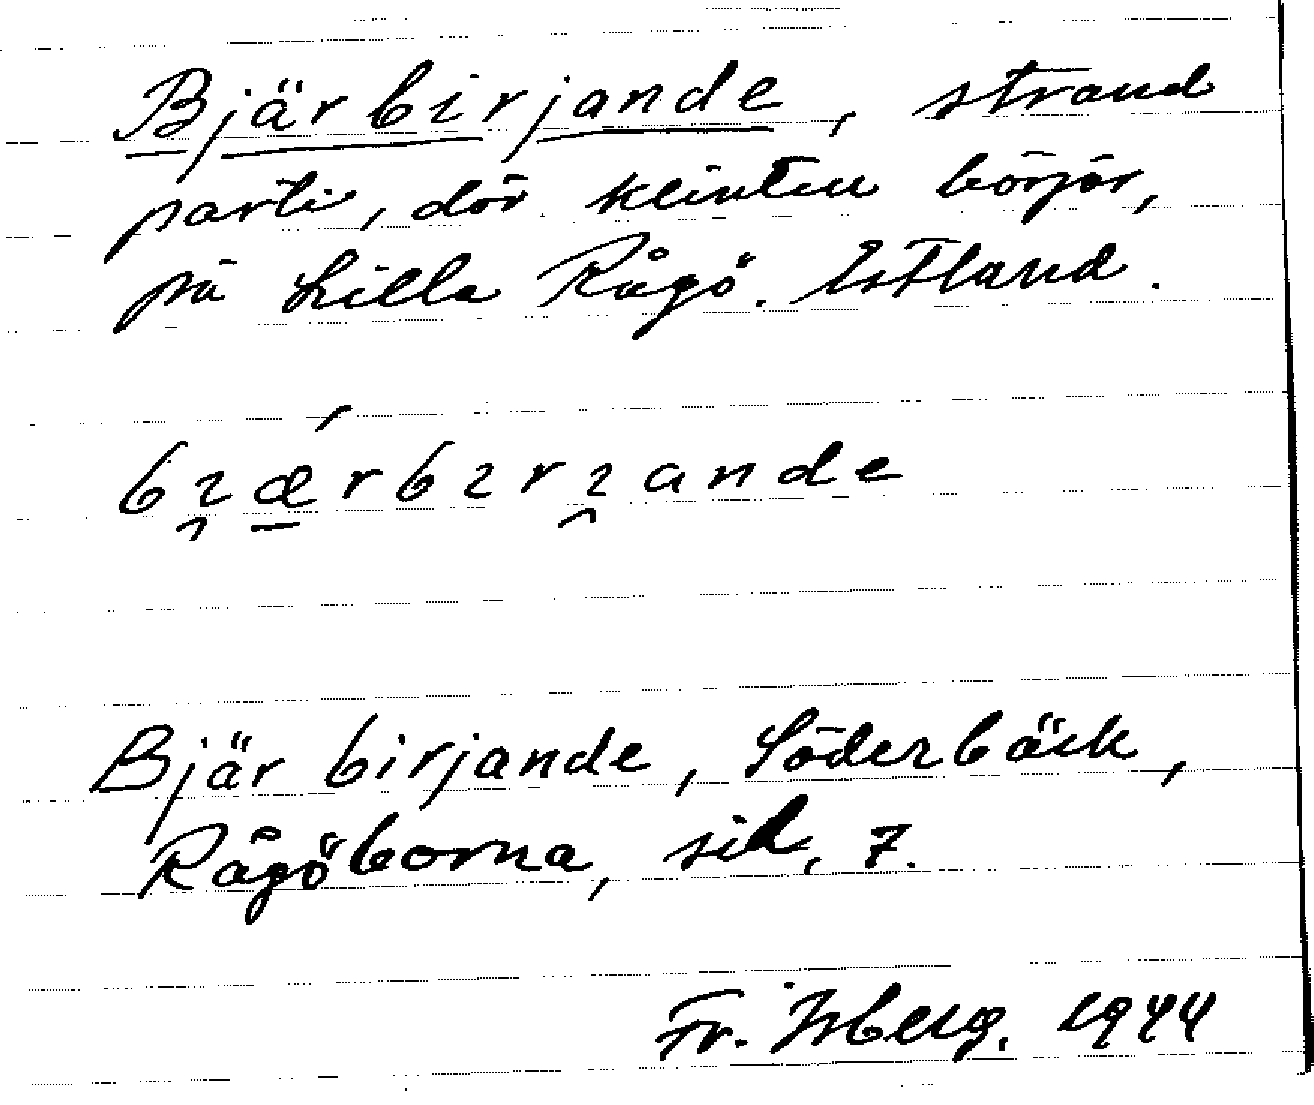 Bjärbirjande, strand
parti, där klinten börjar,
på Lilla Rågö. Estland.
bı̯ǽ̱rbırı̯ande
Bjär birjande, Söderbäck,
Rågöborna, sid. 7.
Fr. Isberg. 1944